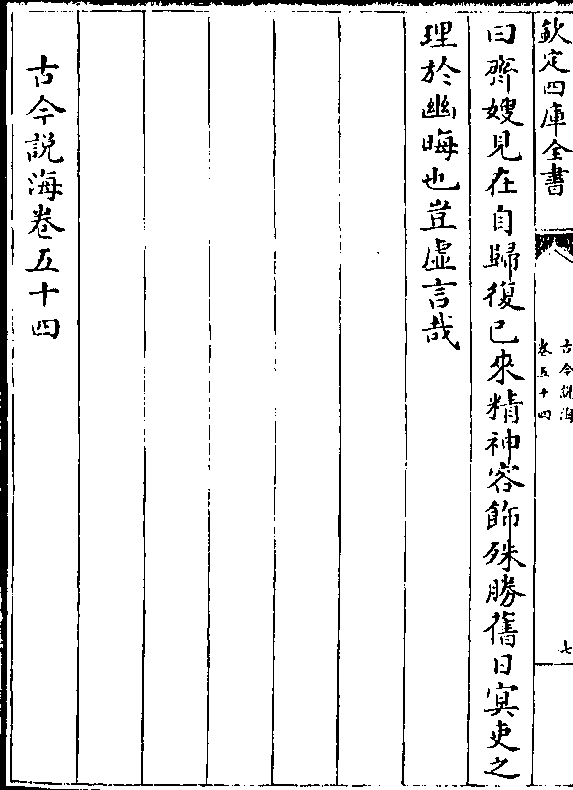 欽定四庫全書
古今説海
卷五十四
七
曰齊嫂見在自歸復已來精神容飾殊勝舊日㝠吏之
理於幽晦也豈虚言哉
古今説海卷五十四